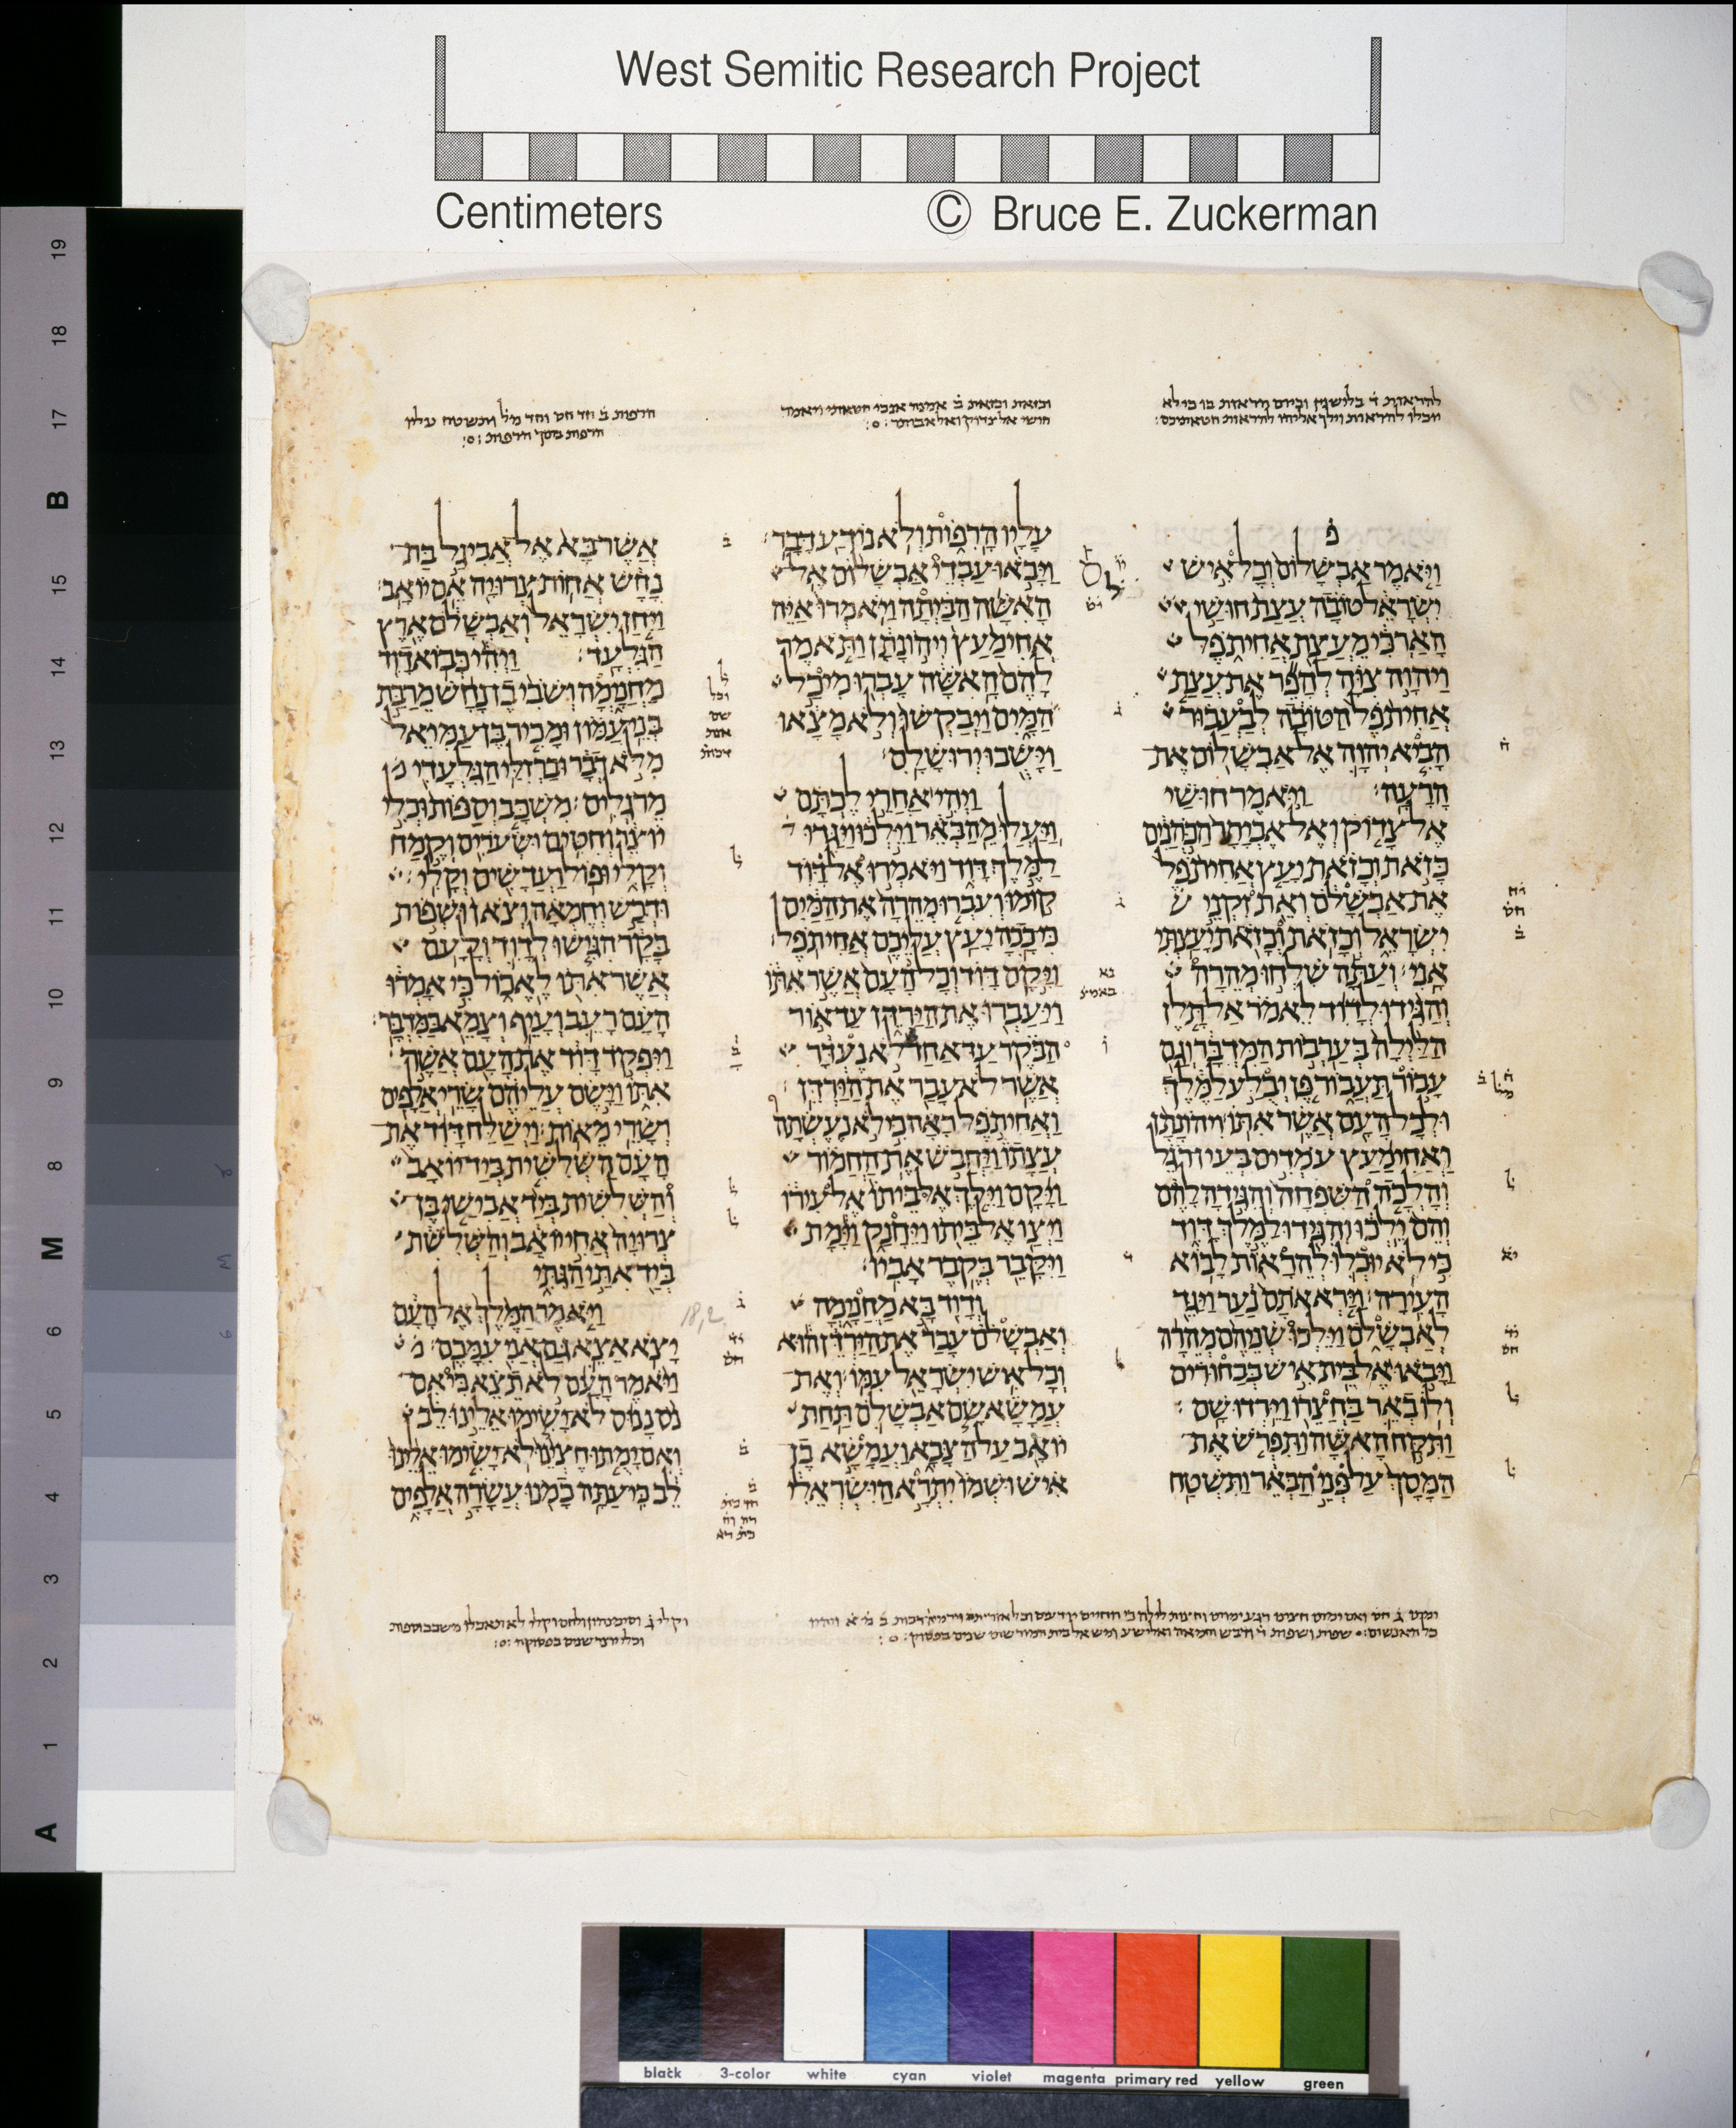 West Semitic Research Project
Centimeters
© Bruce E. Zuckerman
וַיֹּאמֶר אַבְשָׁלוֹם וְכָל אִישׁ
יִשְׂרָאֵל טוֹבָה עֲצַת חוּשַׁי
הָאַרְכִּי מֵעֲצַת אֲחִיתֹפֶל
וַיהוָה צִוָּה לְהָפֵר אֶת עֲצַת
אֲחִיתֹפֶל הַטּוֹבָה לְבַעֲבוּר
הָבִיא יְהוָה אֶל אַבְשָׁלוֹם אֶת
הָרָעָה׃ וַיֹּאמֶר חוּשַׁי
אֶל צָדוֹק וְאֶל אֶבְיָתָר הַכֹּהֲנִים
כָּזֹאת וְכָזֹאת יָעַץ אֲחִיתֹפֶל
אֶת אַבְשָׁלֹם וְאֵת זִקְנֵי
יִשְׂרָאֵל וְכָזֹאת וְכָזֹאת יָעַצְתִּי
אָנִי׃ וְעַתָּה שִׁלְחוּ מְהֵרָה
וְהַגִּידוּ לְדָוִד לֵאמֹר אַל תָּלֶן
הַלַּיְלָה בְּעַרְבוֹת הַמִּדְבָּר וְגַם
עָבוֹר תַּעֲבוֹר פֶּן יְבֻלַּע לַמֶּלֶךְ
וּלְכָל הָעָם אֲשֶׁר אִתּוֹ׃ וִיהוֹנָתָן
וַאֲחִימַעַץ עֹמְדִים בְּעֵין רֹגֵל
וְהָלְכָה הַשִּׁפְחָה וְהִגִּידָה לָהֶם
וְהֵם יֵלְכוּ וְהִגִּידוּ לַמֶּלֶךְ דָּוִד
כִּי לֹא יוּכְלוּ לְהֵרָאוֹת לָבוֹא
הָעִירָה׃ וַיַּרְא אֹתָם נַעַר וַיַּגֵּד
לְאַבְשָׁלֹם וַיֵּלְכוּ שְׁנֵיהֶם מְהֵרָה
וַיָּבֹאוּ אֶל בֵּית אִישׁ בְּבַחוּרִים
וְלוֹ בְאֵר בַּחֲצֵרוֹ וַיֵּרְדוּ שָׁם׃
וַתִּקַּח הָאִשָּׁה וַתִּפְרֹשׂ אֶת
הַמָּסָךְ עַל פְּנֵי הַבְּאֵר וַתִּשְׁטַח
עָלָיו הָרִפוֹת וְלֹא נוֹדַע דָּבָר׃
וַיָּבֹאוּ עַבְדֵי אַבְשָׁלוֹם אֶל
הָאִשָּׁה הַבַּיְתָה וַיֹּאמְרוּ אַיֵּה
אֲחִימַעַץ וִיהוֹנָתָן וַתֹּאמֶר
לָהֶם הָאִשָּׁה עָבְרוּ מִיכַל
הַמָּיִם וַיְבַקְשׁוּ וְלֹא מָצָאוּ
וַיָּשֻׁבוּ יְרוּשָׁלִָם׃
וַיְהִי אַחֲרֵי לֶכְתָּם
וַיַּעֲלוּ מֵהַבְּאֵר וַיֵּלְכוּ וַיַּגִּדוּ
לַמֶּלֶךְ דָּוִד וַיֹּאמְרוּ אֶל דָּוִד
קוּמוּ וְעִבְרוּ מְהֵרָה אֶת הַמַּיִם
כִּי כָכָה יָעַץ עֲלֵיכֶם אֲחִיתֹפֶל׃
וַיָּקָם דָּוִד וְכָל הָעָם אֲשֶׁר אִתּוֹ
וַיַּעַבְרוּ אֶת הַיַּרְדֵּן עַד אוֹר
הַבֹּקֶר עַד אַחַד לֹא נֶעְדָּר
אֲשֶׁר לֹא עָבַר אֶת הַיַּרְדֵּן׃
וַאֲחִיתֹפֶל רָאָה כִּי לֹא נֶעֶשְׂתָה
עֲצָתוֹ וַיַּחֲבֹשׁ אֶת הַחֲמוֹר
וַיָּקָם וַיֵּלֶךְ אֶל בֵּיתוֹ אֶל עִירוֹ
וַיְצַו אֶל בֵּיתוֹ וַיֵּחָנַק וַיָּמָת
וַיִּקָּבֵר בְּקֶבֶר אָבִיו׃
וְדָוִד בָּא מַחֲנָיְמָה
וְאַבְשָׁלֹם עָבַר אֶת הַיַּרְדֵּן הוּא
וְכָל אִישׁ יִשְׂרָאֵל עִמּוֹ׃ וְאֶת
עֲמָשָׂא שָׂם אַבְשָׁלֹם תַּחַת
יוֹאָב עַל הַצָּבָא וַעֲמָשָׂא בֶן
אִישׁ וּשְׁמוֹ יִתְרָא הַיִּשְׂרְאֵלִי
אֲשֶׁר בָּא אֶל אֲבִיגַל בַּת
נָחָשׁ אֲחוֹת צְרוּיָה אֵם יוֹאָב׃
וַיִּחַן יִשְׂרָאֵל וְאַבְשָׁלֹם אֶרֶץ
הַגִּלְעָד׃ וַיְהִי כְּבוֹא דָוִד
מַחֲנָיְמָה וְשֹׁבִי בֶן נָחָשׁ מֵרַבַּת
בְּנֵי עַמּוֹן וּמָכִיר בֶּן עַמִּיאֵל
מִלֹּא דְבָר וּבַרְזִלַּי הַגִּלְעָדִי
מֵרֹגְלִים׃ מִשְׁכָּב וְסַפּוֹת וּכְלִי
יוֹצֵר וְחִטִּים וּשְׂעֹרִים וְקֶמַח
וְקָלִי וּפוֹל וַעֲדָשִׁים וְקָלִי׃
וּדְבַשׁ וְחֶמְאָה וְצֹאן וּשְׁפוֹת
בָּקָר הִגִּישׁוּ לְדָוִד וְלָעָם
אֲשֶׁר אִתּוֹ לֶאֱכוֹל כִּי אָמְרוּ
הָעָם רָעֵב וְעָיֵף וְצָמֵא בַּמִּדְבָּר׃
וַיִּפְקֹד דָּוִד אֶת הָעָם אֲשֶׁר
אִתּוֹ וַיָּשֶׂם עֲלֵיהֶם שָׂרֵי אֲלָפִים
וְשָׂרֵי מֵאוֹת׃ וַיְשַׁלַּח דָּוִד אֶת
הָעָם הַשְּׁלִשִׁית בְּיַד יוֹאָב
וְהַשְּׁלִשִׁית בְּיַד אֲבִישַׁי בֶּן
צְרוּיָה אֲחִי יוֹאָב וְהַשְּׁלִשִׁת
בְּיַד אִתַּי הַגִּתִּי
18,2
וַיֹּאמֶר הַמֶּלֶךְ אֶל הָעָם
יָצֹא אֵצֵא גַּם אֲנִי עִמָּכֶם׃
וַיֹּאמֶר הָעָם לֹא תֵצֵא כִּי אִם
נֹס נָנוּס לֹא יָשִׂימוּ אֵלֵינוּ לֵב
וְאִם יָמֻתוּ חֶצְיֵנוּ לֹא יָשִׂימוּ אֵלֵינוּ
לֵב כִּי עַתָּה כָמֹנוּ עֲשָׂרָה אֲלָפִים
19
18
17
B
16
15
14
13
12
11
10
9
8
M
7
6
5
4
3
2
1
A
black 3-color white cyan violet magenta primary red yellow green